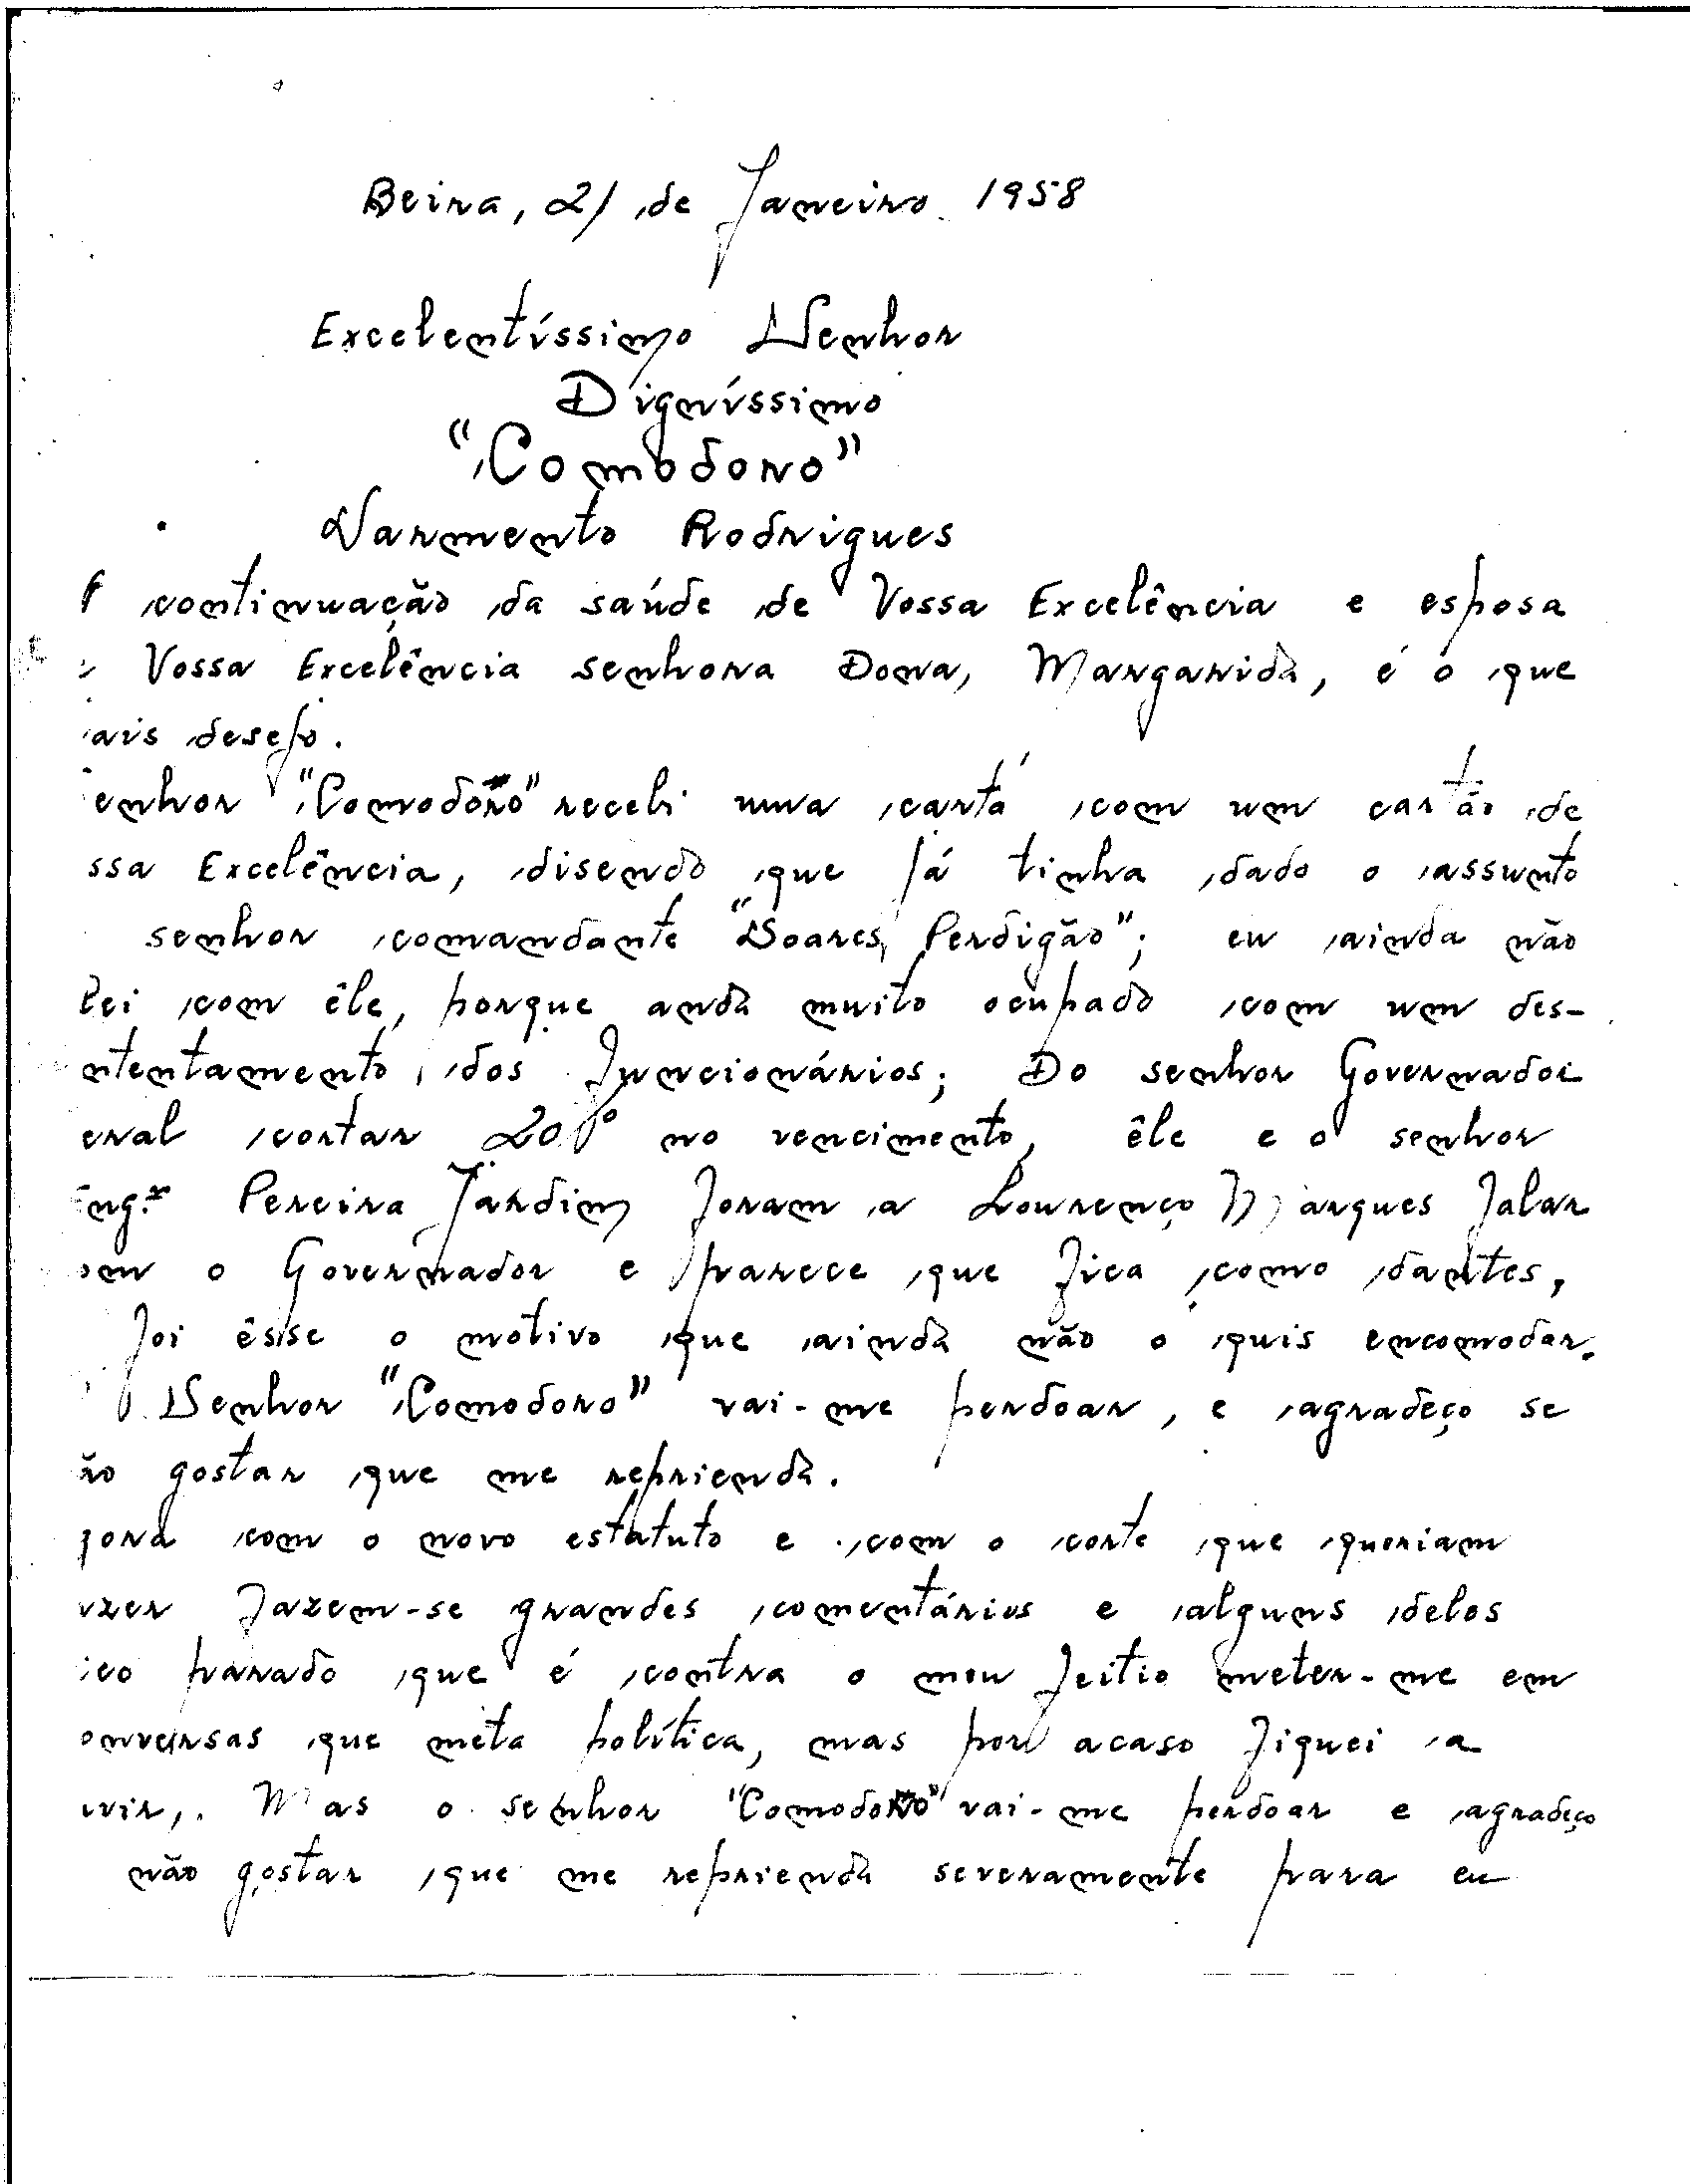 Beira, 21 de Janeiro 1958
Excelentíssimo Senhor
Digníssimo
"Comodoro"
Sarmento Rodrigues
continuação da saúde de Vossa Excelência e esposa
Vossa Excelência senhora Dona, Margarida, é o que
ais desejo.
enhor "Comodoro" recebi uma carta com um cartão de
ssa Excelência, disendo que já tinha dado o assunto
senhor comandante "Soares Perdigão"; eu ainda não
lei com êle, porque anda muito ocupado com um des-
ntentamento dos funcionários; Do senhor Governador
eral cortar 20% no vencimento, êle e o senhor
Eng.º Pereira Jardim foram a Lourenço Marques falar
om o Governador e parece que fica como dantes,
foi êsse o motivo que ainda não o quis encomodar.
Senhor "Comodoro" vai-me perdoar, e agradeço se
ão gostar que me reprienda.
gora com o novo estatuto e com o corte que queriam
azer fazem-se grandes comentários e alguns deles
ico parado que é contra o meu jeitio meter-me em
onversas que meta política, mas por acaso fiquei a
uvir,. Mas o senhor "Comodoro" vai-me perdoar e agradeço
não gostar que me reprienda severamente para eu